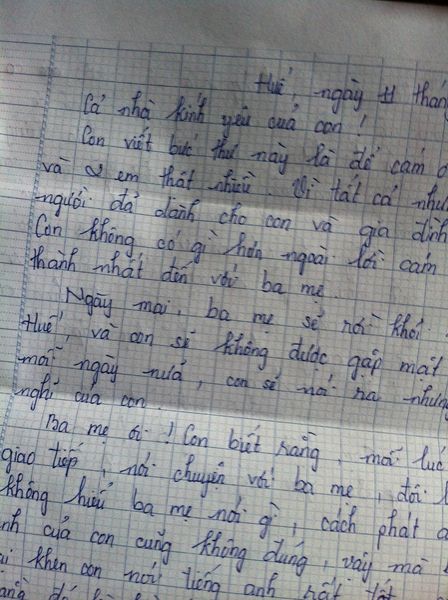 Huế, ngày 11 thán
Cả nhà kính yêu của con !
Con viết bức thư này là để cảm ơ
và 2 em thật nhiều. Vì tất cả như
người đã dành cho con và gia đình
Con không có gì hơn ngoài lời cảm
thành nhất đến với ba mẹ.
Ngày mai, ba mẹ sẽ rời khỏi
Huế, và con sẽ không được gặp mặt
mỗi ngày nữa, con sẽ nói ra nhưng
nghĩ của con.
Ba mẹ ơi ! Con biết rằng, mỗi lúc
giao tiếp, nói chuyện với ba mẹ, đôi l
không hiểu ba mẹ nói gì, cách phát â
nh của con cũng không đúng, vậy mà b
ại khen con nói tiếng anh rất tốt